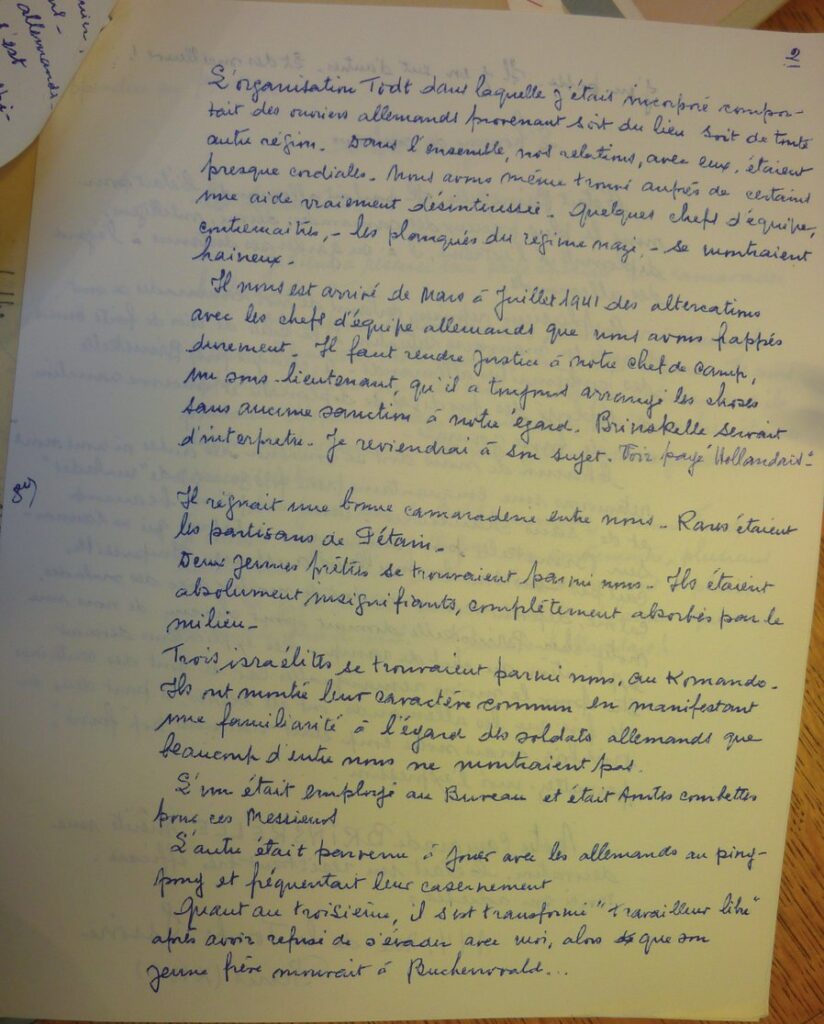 2
L'organisation Todt dans laquelle j'étais incorporé compor-
tait des ouvriers allemands provenant soit du lieu soit de toute
autre région. Dans l'ensemble, nos relations, avec eux, étaient
presque cordiales. Nous avons même trouvé auprès de certains
une aide vraiement désintéressée. Quelques chefs d'équipe,
contremaîtres, - les planqués du régime nazi, - se montraient
haineux.
Il nous est arrivé de Mars à Juillet 1941 des altercations
avec les chefs d'équipe allemands que nous avons frappés
durement. Il faut rendre justice à notre chef de camp,
un sous-lieutenant, qu'il a toujours arrangé les choses
sans aucune sanction à notre égard. Brinskelle servait
d'interprète. Je reviendrai à son sujet. Voir page "Hollandais"
3e)
Il régnait une bonne camaraderie entre nous. Rares étaient
les partisans de Pétain.
Deux jeunes prêtres se trouvaient parmi nous. Ils étaient
absolument insignifiants, complètement absorbés par le
milieu.
Trois israélites se trouvaient parmi nous, au Komando.
Ils ont montré leur caractère commun en manifestant
une familiarité à l'égard des soldats allemands que
beaucoup d'entre nous ne montraient pas.
L'un était employé au Bureau et était courbettes
pour ces Messieurs
L'autre était parvenu à jouer avec les allemands au ping-
pong et fréquentait leur casernement
Quant au troisième, il s'est transformé "travailleur libre"
après avoir refusé de s'évader avec moi, alors que son
jeune frère mourait à Buchenwald...
allemands
s'est